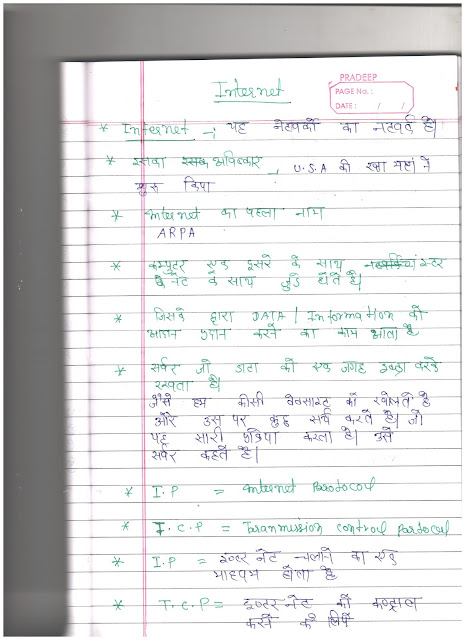 PRADEEP
PAGE No. :
DATE : / /
Internet
* Internet - यह नेटवर्को का नेटवर्क है।
* इसका अविष्कार - U.S.A की रक्षा ने
शुरू किया
* Internet का पहला नाम
ARPA
* कम्पुटर एक दूसरे के साथ इंटर
नेट के साथ जुडे होते है।
* जिसके द्वारा DATA / Information को
आदान प्रदान करने का काम आता है
* सर्वर जो डाटा को एक जगह इकठ्ठा करके
रखता है।
जैसे हम कीसी वेबसाइट को खोलते है
और उस पर कुछ सर्च करते है। जो
यह सारी प्रक्रिया करता है। उसे
सर्वर कहते है।
* I.P = Internet Parotocoul
* T.C.P = Taranmission control Partocoul
* I.P = इन्टर नेट चलाने का एक
माध्यम होता है
* T.C.P = इन्टर नेट को कन्ट्राल
करने के लिये